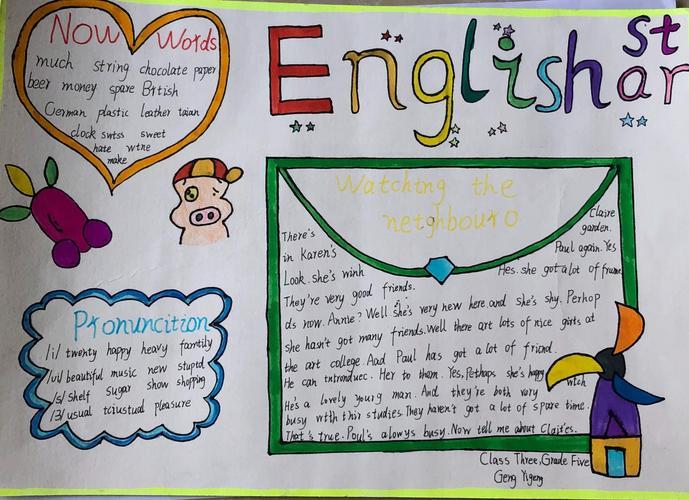 Now Words
much string chocolate paper
beer money spare British
German plastic leather taian
clock swtss sweet
hate wtne
make
English star
Watching the
netghbouro
There's
in Karen's
Look. she's winh
They're very good friends.
Claire
garden.
Paul again. Yes
Hes. she got a lot of
ds now. Annie? Well she's very new here. and she's shy. Perhop
she hasn't got many friends. Well there art lots of nice girts at
the art college Aad Paul has got a lot of friend.
He can introduec. Her to them. Yes, Perhaps she's happy
wtch
He's a lovely young man. And they're both very
busy wtth thir studies. They haven't got a lot of spare time.
That's true. Poul's alowys busy. Now tell me about Clair'es.
Pronuncition
/i/ twenty happy heavy famtily
/ui/ beautiful music new stuptd
/s/ shelf sugar show shopping
/3/ usual tciustual pleasure
Class Three, Grade Five
Geng Yigeng